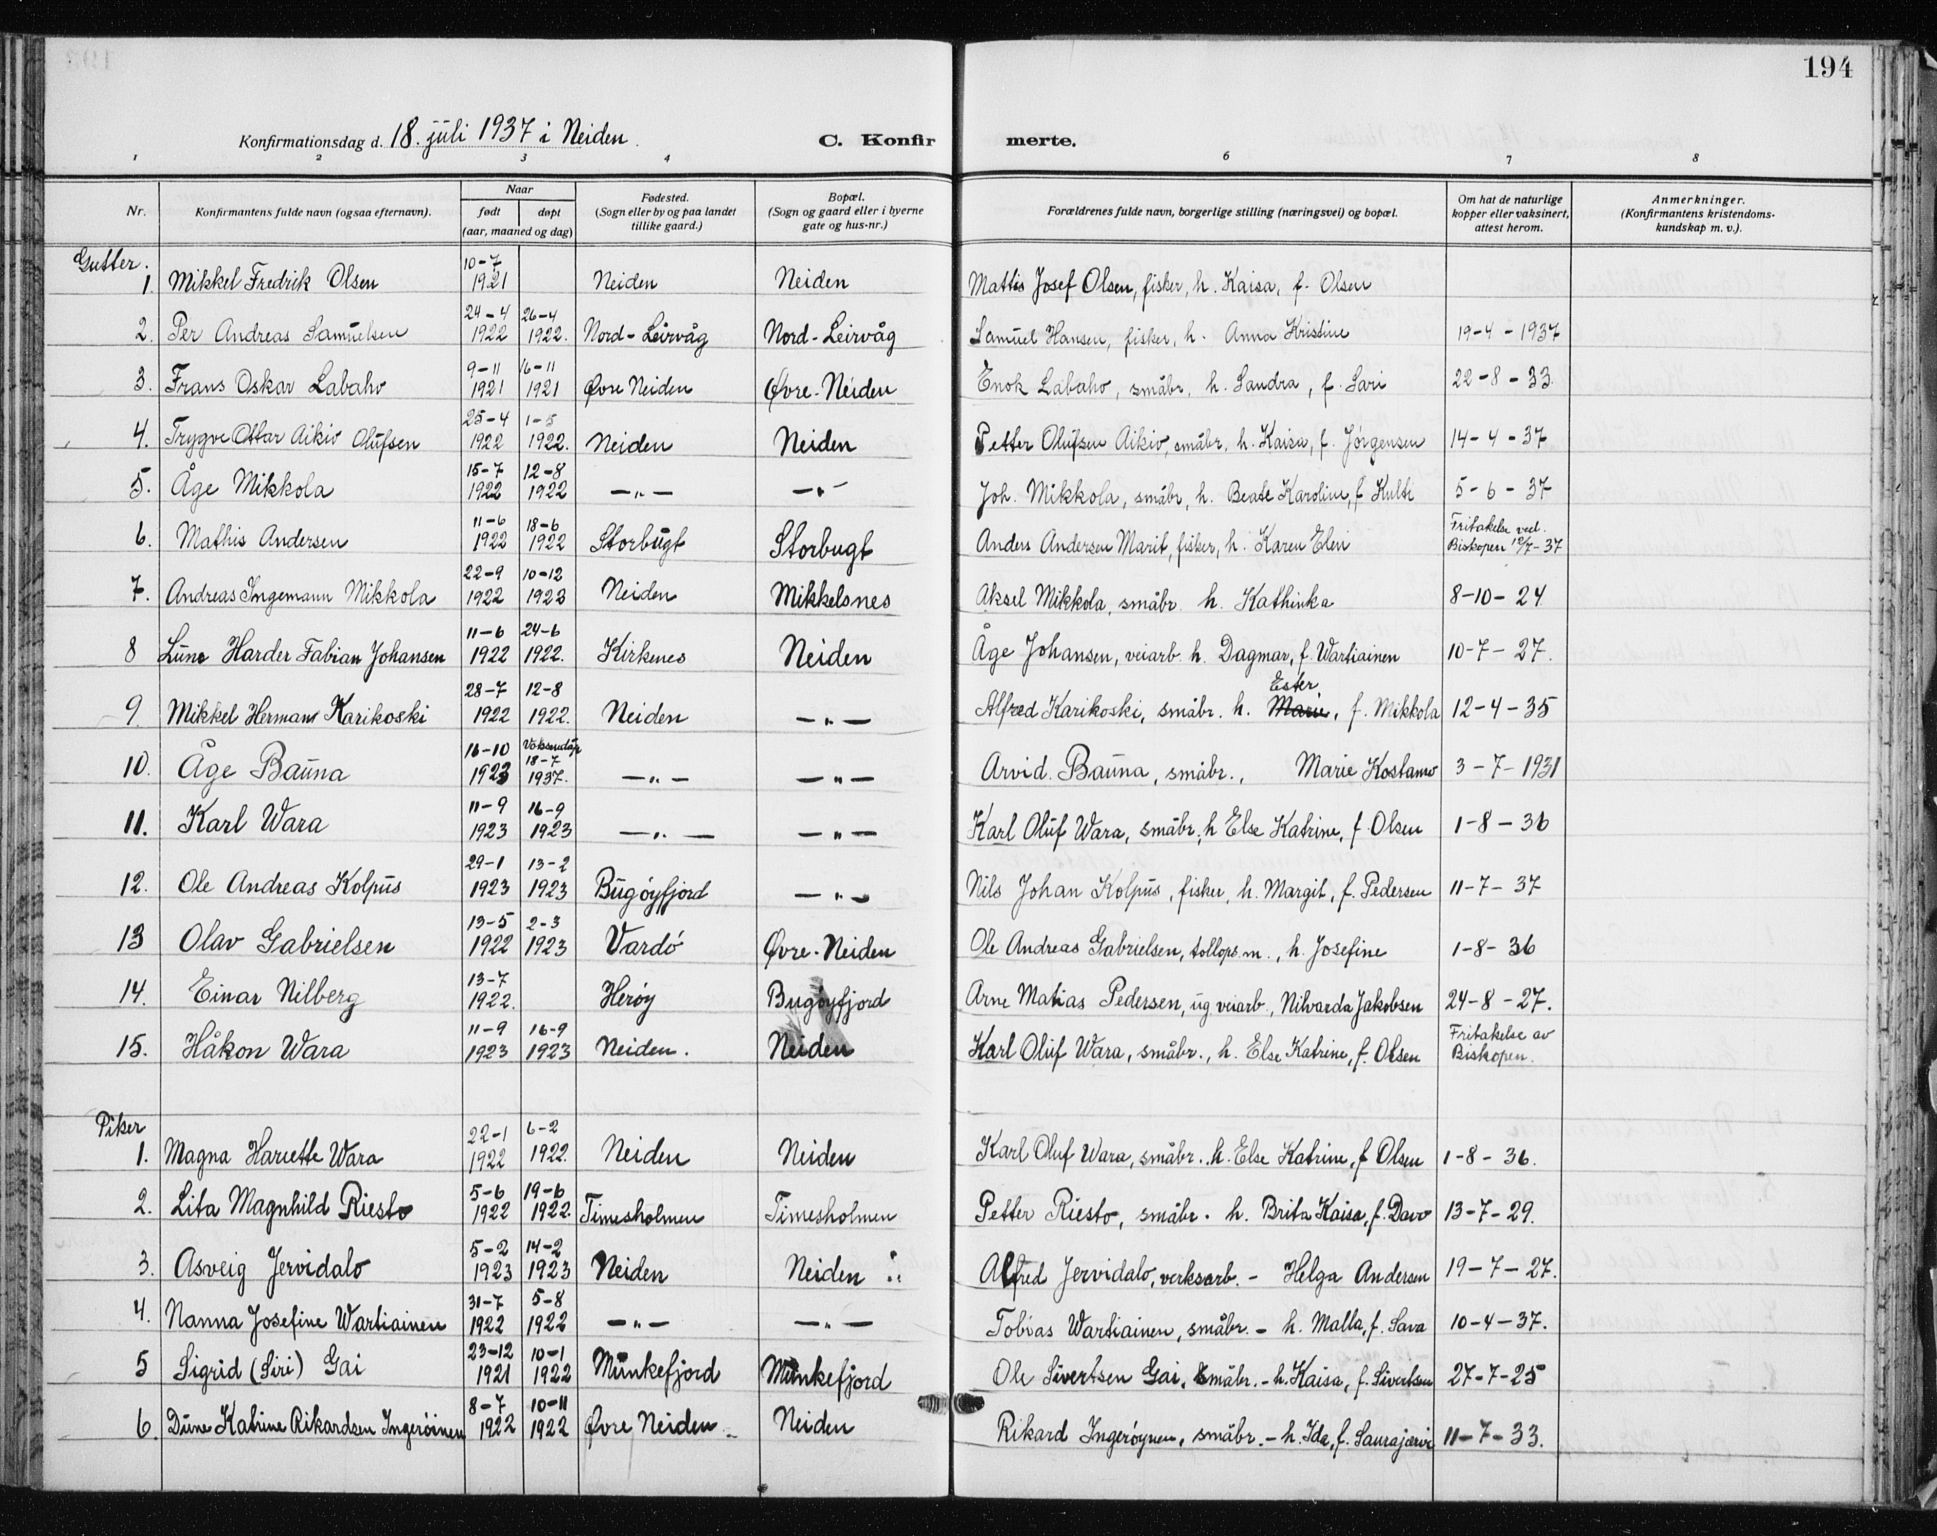 194
Konfirmationsdag d. 18. juli 1937 i Neiden. C. Konfirmerte.
1 2 3 4 6 7 8
Nr. Konfirmantens fulde navn (ogsaa efternavn). Naar født døpt (aar, maaned og dag) Fødested. (Sogn eller by og paa landet tillike gaard.) Bopæl. (Sogn og gaard eller i byerne gate og hus-nr.) Forældrenes fulde navn, borgerlige stilling (næringsvei) og bopæl. Om hat de naturlige kopper eller vaksinert, attest herom. Anmerkninger. (Konfirmantens kristendoms-kundskap m. v.).
Gutter.
1. Mikkel Fredrik Olsen 10-7 1921 Neiden Neiden Mattis Josef Olsen, fisker, h. Kaisa, f. Olsen
2. Per Andreas Samuelsen 24-4 1922 26-4 1922. Nord-Leirvåg Nord-Leirvåg Samuel Hansen, fisker, h. Anna Kristine 19-4-1937
3. Frans Oskar Labaho 9-11 1921 16-11 1921 Øvre Neiden Øvre-Neiden Enok Labaho, småbr. h. Sandra, f. Sari 22-8-33.
4. Trygve Ottar Aikio Olufsen 25-4 1922 1-5 1922. Neiden Neiden Petter Olufsen Aikio, småbr. h. Kaisa, f. Jørgensen 14-4-37
5. Åge Mikkola 15-7 1922 12-8 1922 —"— —"— Joh. Mikkola, småbr. h. Beate Karoline, f. Kulti 5-6-37
6. Mathis Andersen 11-6 1922 18-6 1922 Storbugt Storbugt Anders Andersen Marit, fisker, h. Karen Elen Fritakelse ved. Biskopen 12/7-37
7. Andreas Ingemann Mikkola 22-9 1922 10-12 1923 Neiden Mikkelsnes Aksel Mikkola, småbr. h. Kathinka 8-10-24
8 Lune Harder Fabian Johansen 11-6 1922 24-6 1922. Kirkenes Neiden Åge Johansen, veiarb. h. Dagmar, f. Wartiainen 10-7-27.
9. Mikkel Hermans Karikoski 28-7 1922 12-8 1922. Neiden —"— Alfred Karikoski, småbr. h. Marie Ester, f. Mikkola 12-4-35
10. Åge Bauna 16-10 1923 Voksendåp 18-7 1937. —"— —"— Arvid. Bauna, småbr., Marie Kostamo 3-7-1931
11. Karl Wara 11-9 1923 16-9 1923 —"— —"— Karl Oluf Wara, småbr., h Else Katrine, f. Olsen 1-8-36
12. Ole Andreas Kolpus 29-1 1923 13-2 1923 Bugøyfjord —"— Nils Johan Kolpus, fisker, h. Margit, f. Pedersen 11-7-37
13 Olav Gabrielsen 13-5 1922 2-3 1923 Vardö Øvre-Neiden Ole Andreas Gabrielsen, tollops.m., h. Josefine 1-8-36
14. Einar Nilberg 13-7 1922. Herøy Bugøyfjord Arne Matias Pedersen, ug veiarb., Nilvarda Jakobsen 24-8-27.
15. Håkon Wara 11-9 1923 16-9 1923 Neiden. Neiden Karl Oluf Wara, småbr., h. Else Katrine, f. Olsen Fritakelse av Biskopen.
Piker
1. Magna Hariette Wara 22-1 1922 6-2 1922. Neiden Neiden Karl Oluf Wara, småbr., h. Else Katrine, f Olsen 1-8-36.
2. Lita Magnhild Riesto 5-6 1922 19-6 1922. Timesholmen Timesholmen Petter Riesto, småbr. h. Brita Kaisa, f. Davo 13-7-29.
3. Asveig Jervidalo 5-2 1923 14-2 1923 Neiden Neiden Alfred Jervidalo, verksarb. - Helga Andersen 19-7-27.
4. Nanna Josefine Wartiainen 31-7 1922 5-8 1922 —"— —"— Tobias Wartiainen, småbr. - h. Malla, f. Sava 10-4-37.
5 Sigrid (Siri) Gai 23-12 1921 10-1 1922 Munkefjord Munkefjord Ole Sivertsen Gai, småbr. - h. Kaisa, f. Sivertsen 27-7-25
6. Dune Katrine Rikardsen Ingeröinen 8-7 1922 10-11 1922 Øvre Neiden Neiden Rikard Ingerøynen, småbr. - h. Ida, f. Saurajærvi 11-7-33.